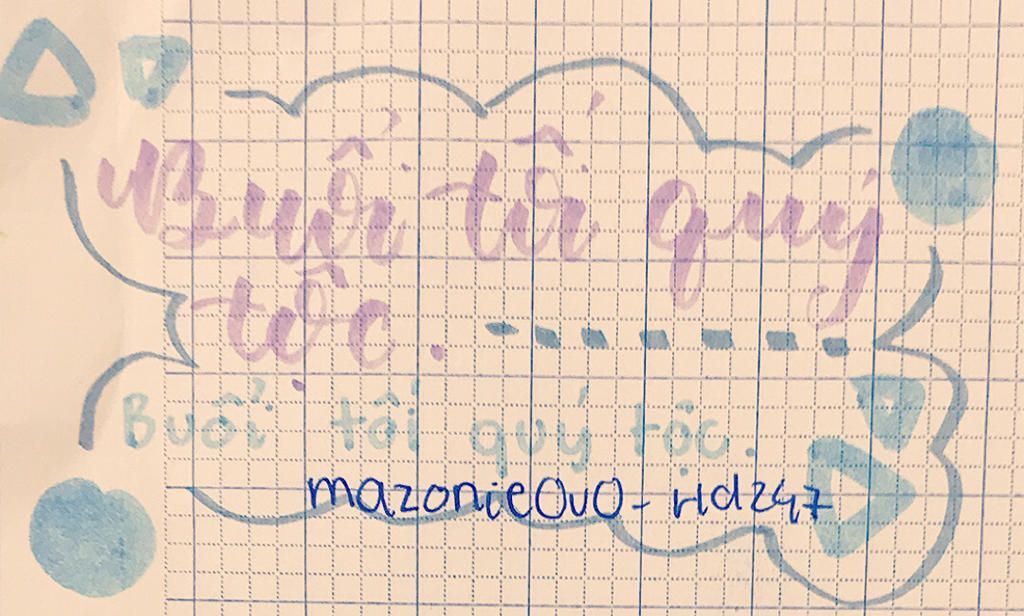 Buổi tối quý
tộc.
Buổi tối quý tộc.
mazonieOvO_HD247